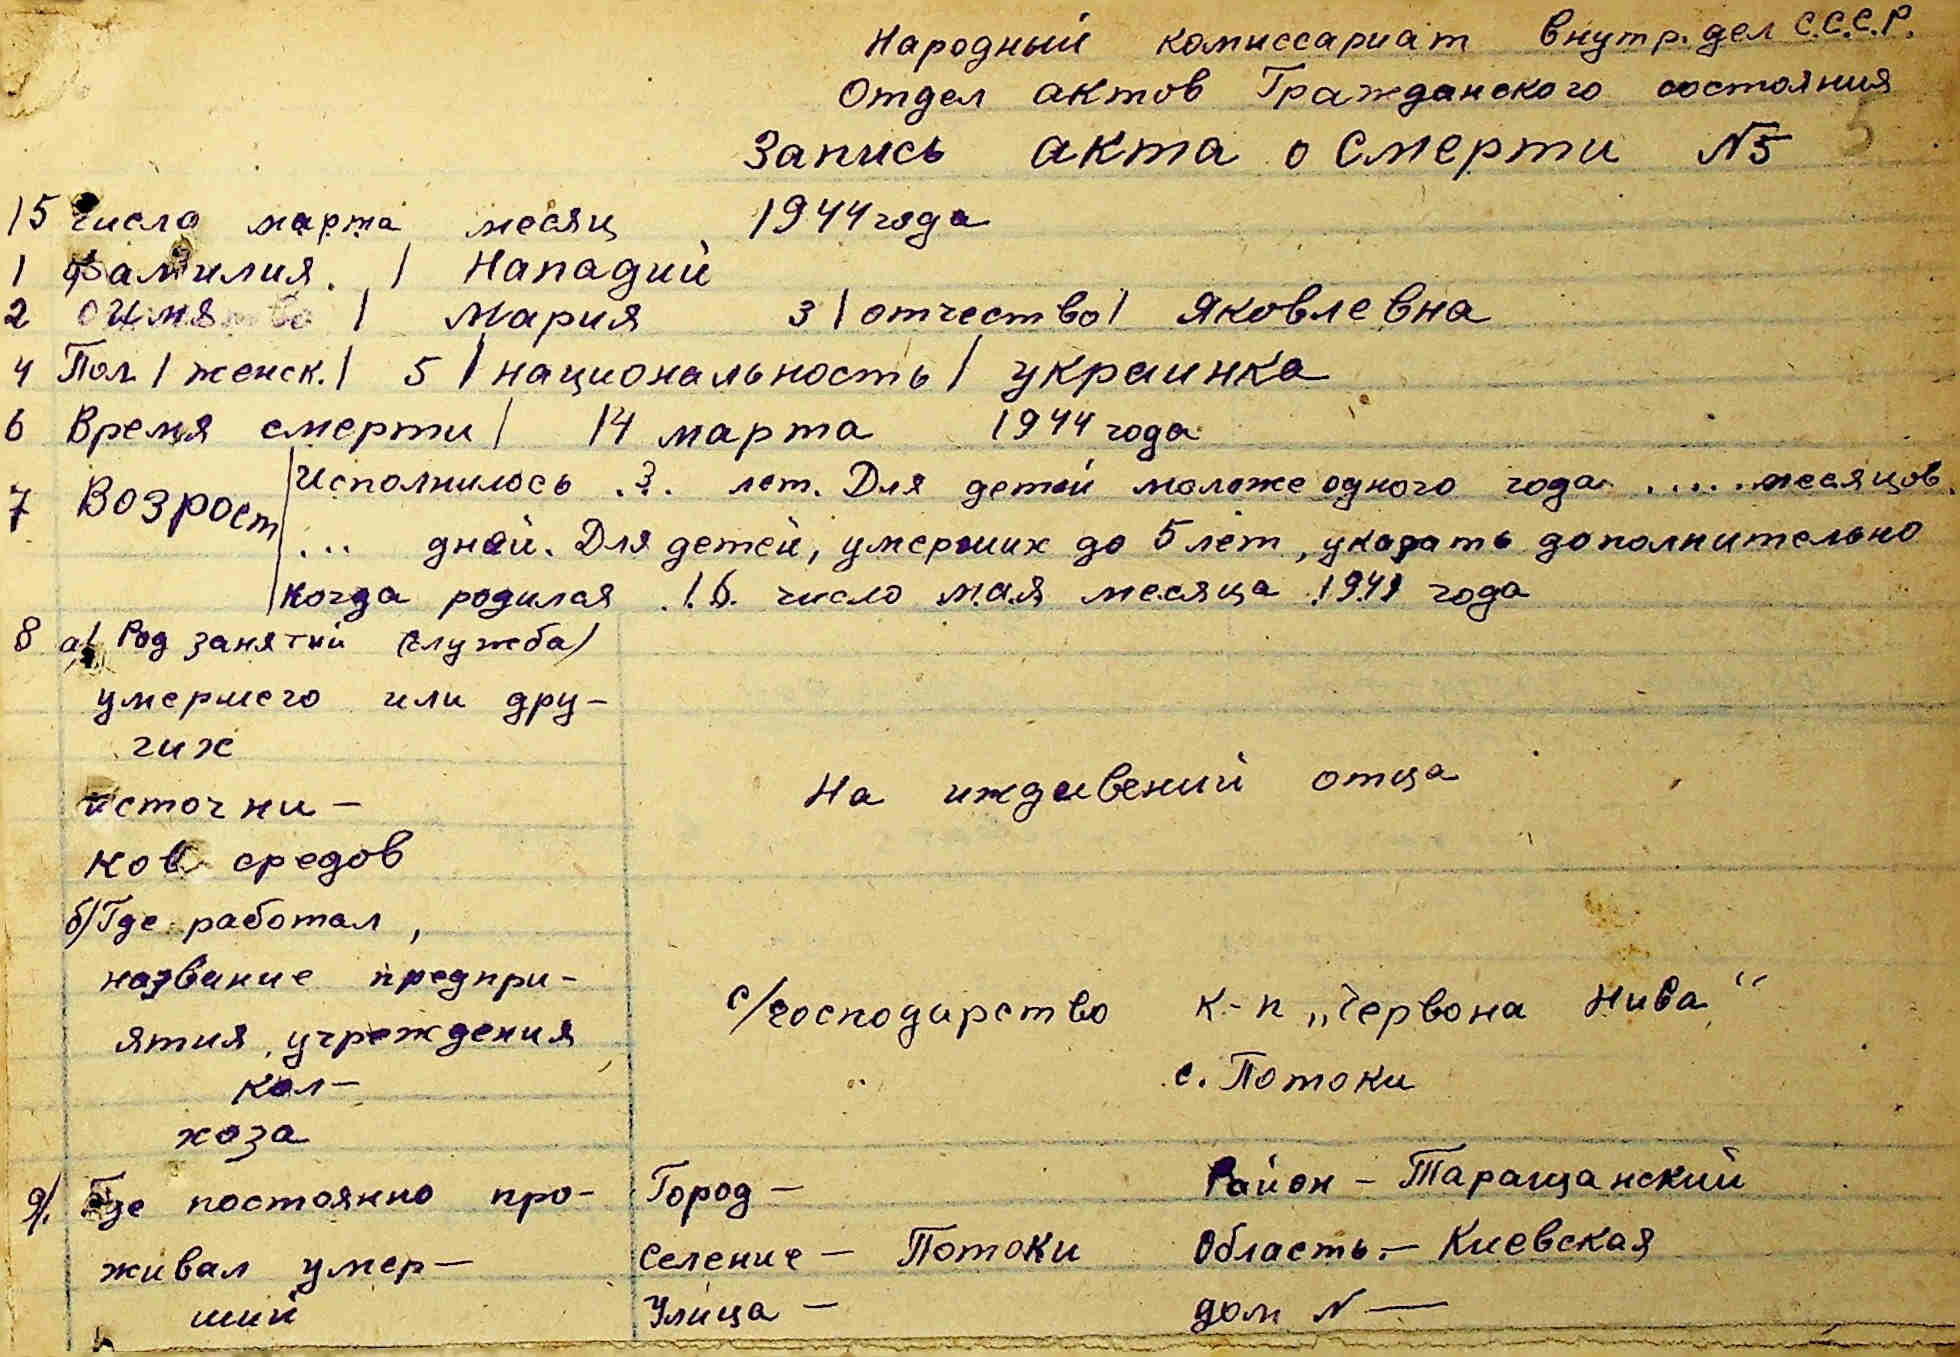 Народный комиссариат внутр. дел С.С.С.Р.
Отдел актов Гражданского состояния
Запись акта о смерти №5 5
15 числа марта месяц 1944 года
1 Фамилия. / Нападий
2 Имя / Мария 3 / отчество / Яковлевна
4 Пол / женск. / 5 / национальность / украинка
6 Время смерти / 14 марта 1944 года
7 Возрост Исполнилось .3. лет. Для детей моложе одного года ..... месяцов.
... дней. Для детей, умерших до 5 лет, указать дополнительно
когда родилая .16. число мая месяца 1941 года
8 а/ Род занятий (служба)
умершего или дру-
гих
источни-
ков средов
На иждивений отца
б/ Где работал,
название предпри-
ятия, учреждения
кол-
хоза
с/господарство к-п „Червона Нива"
с. Потоки
9/. Где постоянно про-
живал умер-
ший
Город — Район - Таращанский
Селение — Потоки Область. - Киевская
Улица — дом № —